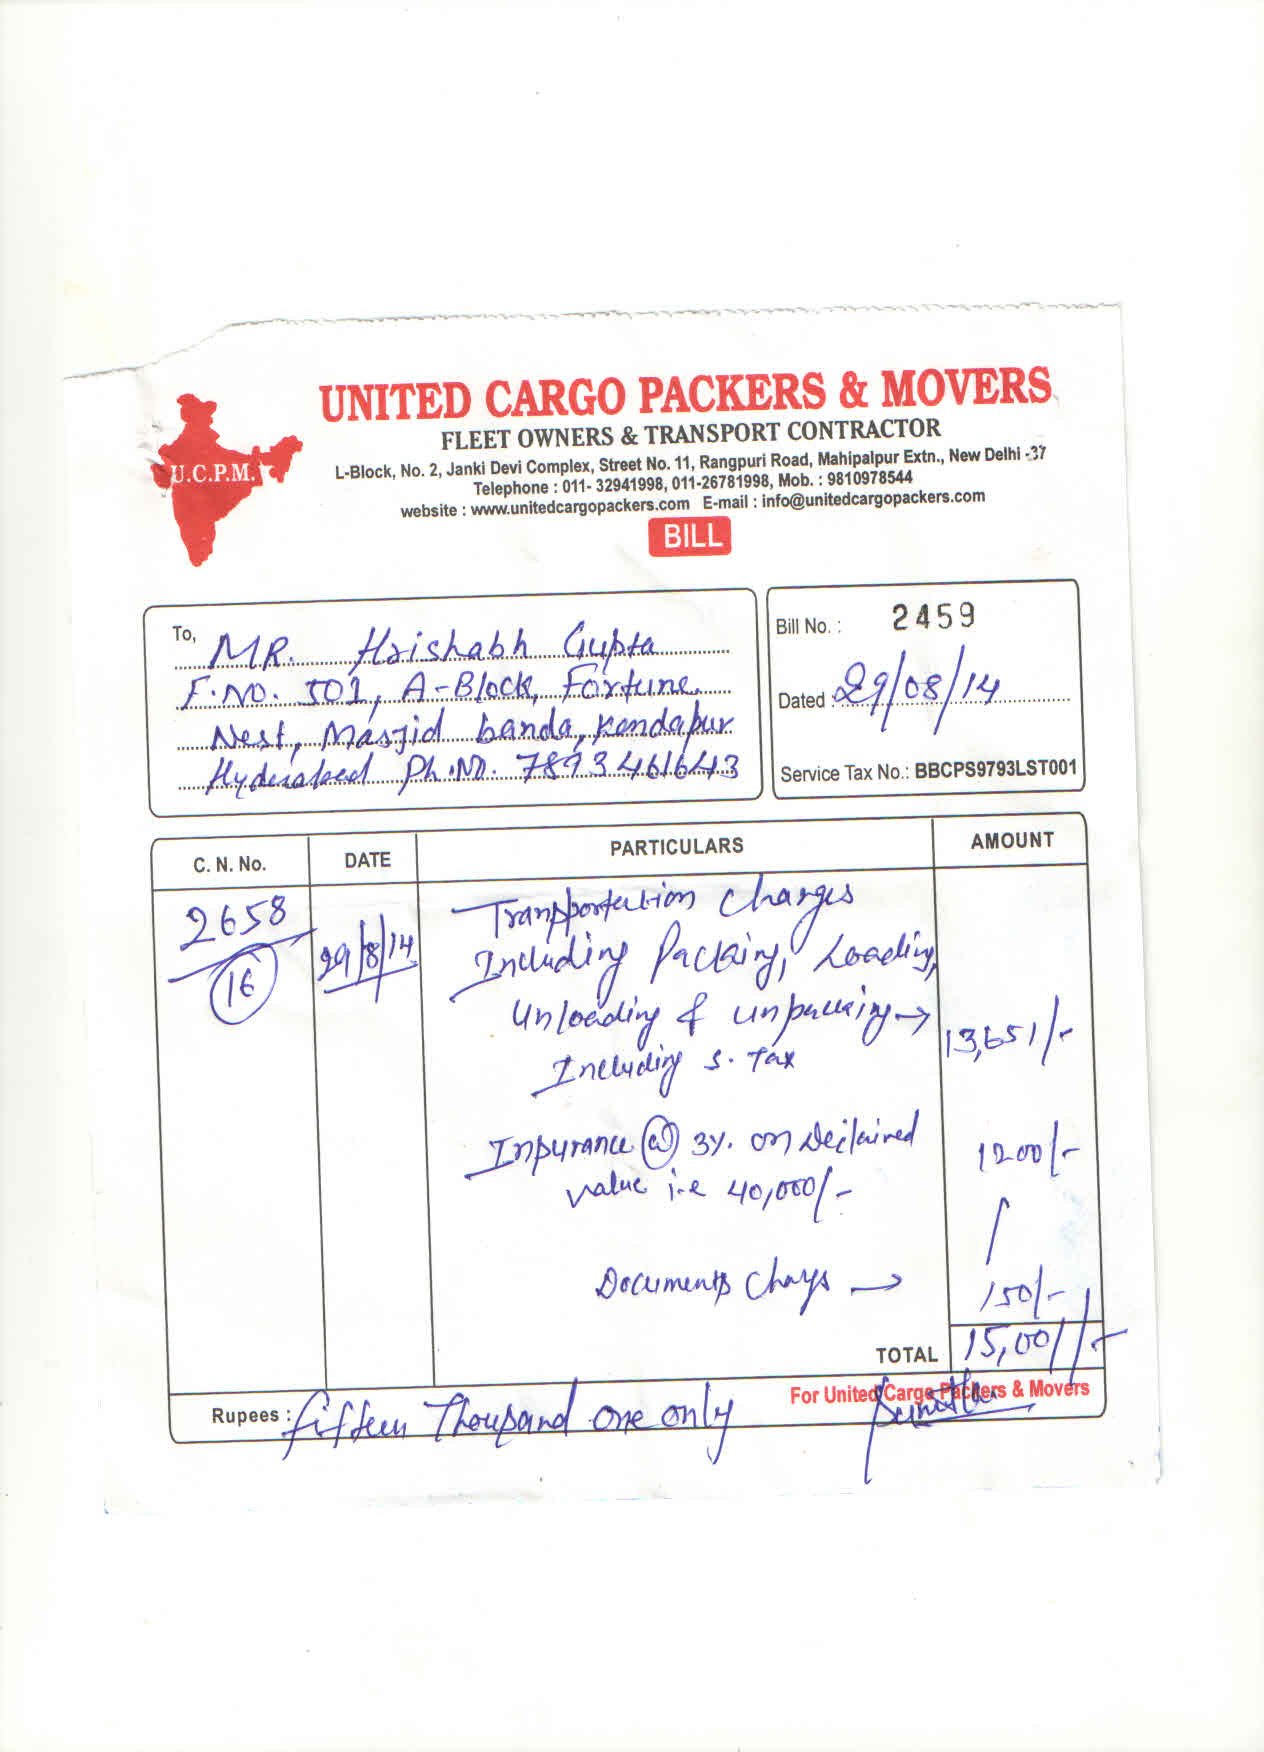 UNITED CARGO PACKERS & MOVERS
FLEET OWNERS & TRANSPORT CONTRACTOR
U.C.P.M.
L-Block, No. 2, Janki Devi Complex, Street No. 11, Rangpuri Road, Mahipalpur Extn., New Delhi -37
Telephone : 011- 32941998, 011-26781998, Mob. : 9810978544
website : www.unitedcargopackers.com E-mail : info@unitedcargopackers.com
BILL
To, MR. Hrishabh Gupta
F.NO. 501, A-Block, Fortune
Nest, Masjid banda, Kondapur
Hyderabad Ph.NO. 7893461643
Bill No. : 2459
Dated : 29/08/14
Service Tax No.: BBCPS9793LST001
C. N. No. DATE PARTICULARS AMOUNT
2658 29/8/14 Transportation Charges
16 Including Packing, Loading,
Unloading & unpacking → 13,651/-
Including S. Tax
Insurance @ 3% on Declaired 1200/-
value i.e 40,000/-
Documents Charges → 150/-
TOTAL 15,001/-
For United Cargo Packers & Movers
Rupees : fifteen Thousand one only